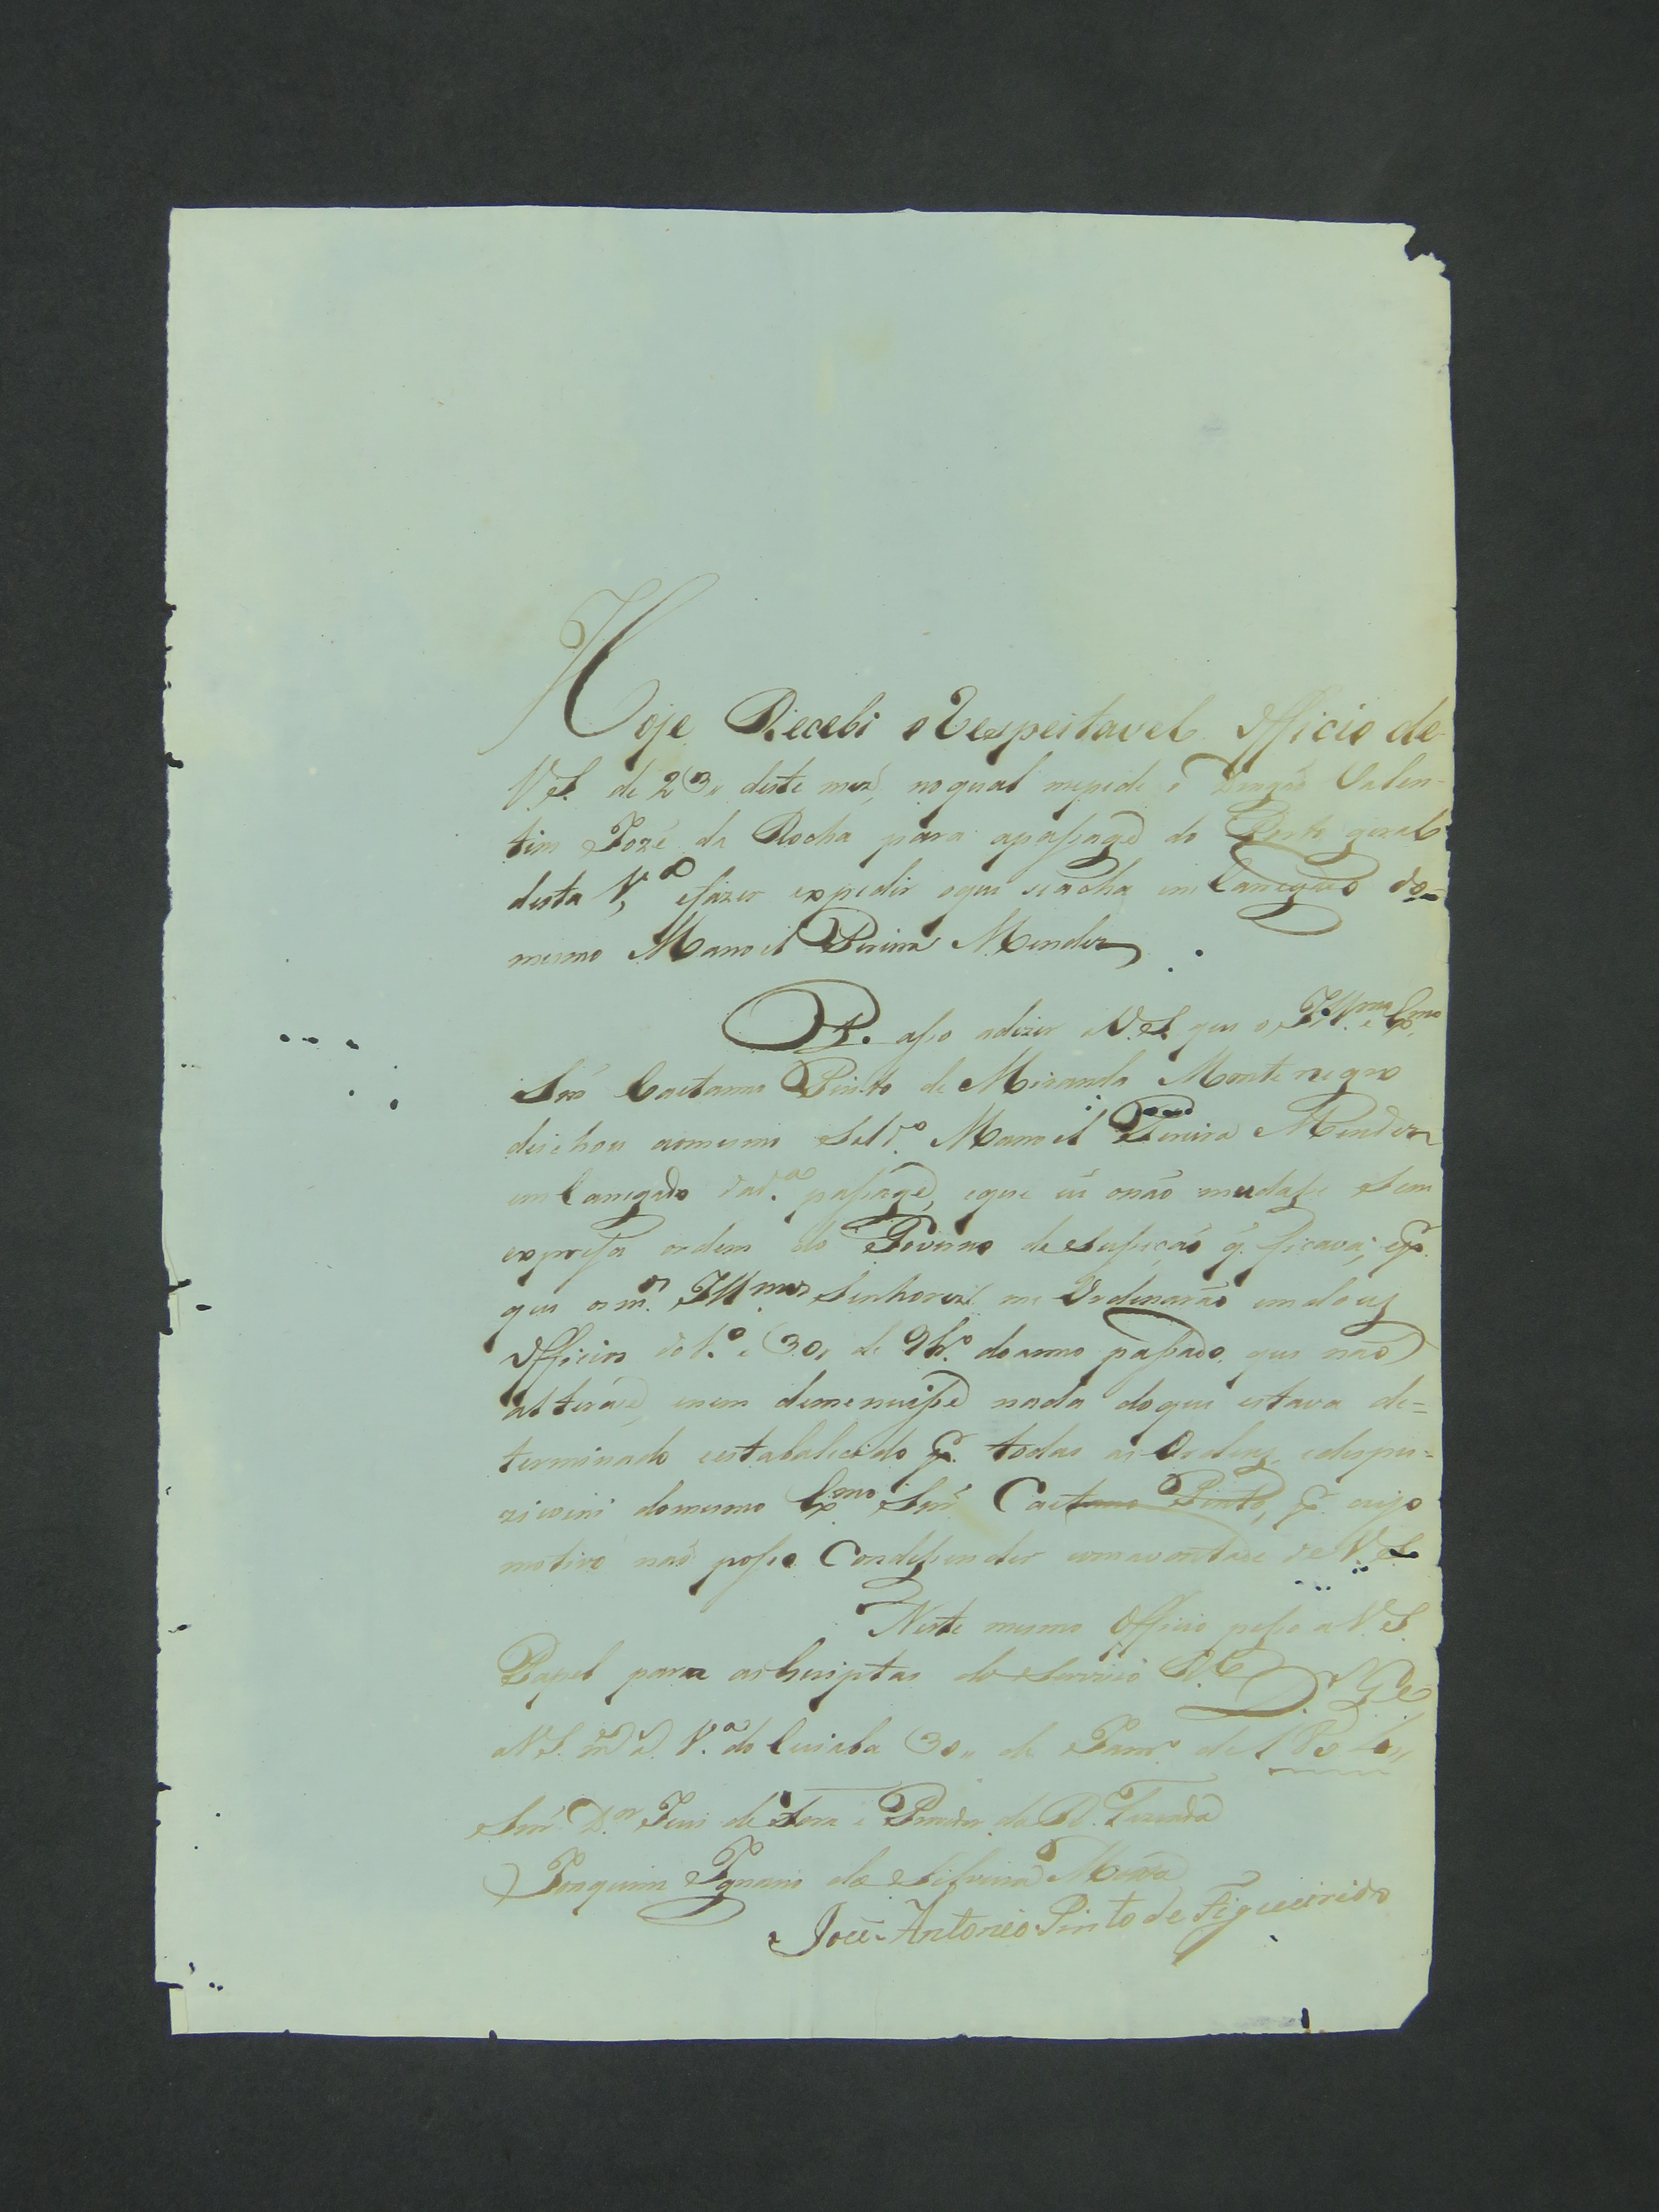 Hoje Recebi o Respeitavel Officio de
V.S. de 23,, deste mez, no qual me pede o Dragaõ Valen-
tim Jozé da Rocha para apassagē do Porto geral
desta V.ª efazer expedir oque seacha em Carregado do=
mesmo Manoel Pereira Mendez
Passo adizer aV.S. que o Ill.mo e Ex.mo
Snr̃ Caetanno Pinto de Miranda Montenegro
deichou aomesmo Sold.º Manoel Pereira Mendez
em Carregado dad.ª passagē, eque eu onão mudase sem
expressa ordem do Governo de Susseçaõ q. ficava; e p.
que os m.os Ill.mos Senhorez me Ordenaraõ em douz
Officios do 1.º e 30,, de 9br.º do anno passado que naõ
alteráce, enem demenuisse nada doque estava de=
terminado eestabalecido p. todas as Ordenz, edespu=
zicoins domesmo Ex.mo Snr̃ Caetano Pinto, p. cujo
motivo naõ posso Condessender comavontade deV.S.
Neste mesmo Officio pesso a V.S.
Papel para as Escriptas do Servico R.l D. G.e
aV.S. m. a. V.ª do Cuiaba 30,, de Janr.º de 1804,,
Snr̃ D.or Juis de Fora e Provdor da R. Fazenda
Joaquim Ignacio da Silveira Motta
Joze Antonio Pinto de Figueirido